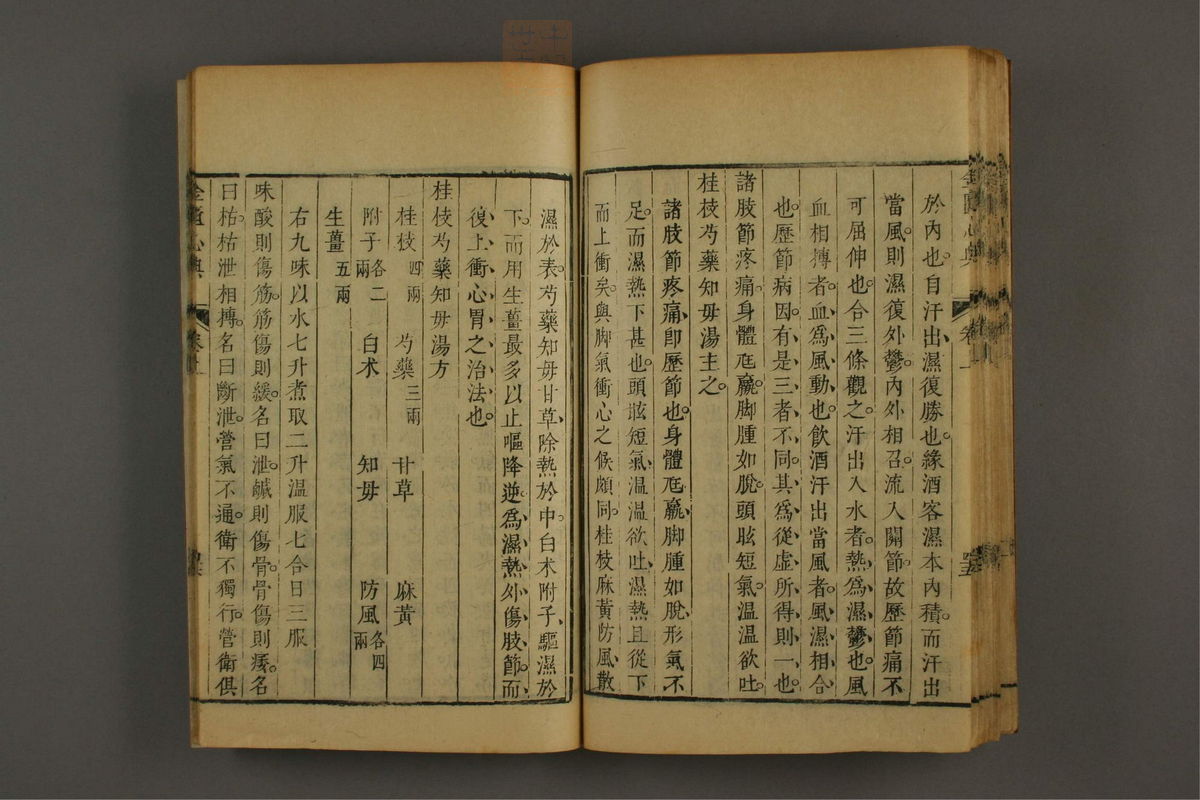 於內也。自汗出。濕復勝也。緣酒客濕本內積。而汗出
當風。則濕復外鬱。內外相召。流入關節。故歷節痛不
可屈伸也。合三條觀之。汗出入水者。熱為濕鬱也。風
血相搏者。血為風動也。飲酒汗出當風者。風濕相合
也。歷節病因。有是三者不同。其為從虛所得則一也
諸肢節疼痛。身體尫羸。脚腫如脫。頭眩短氣。溫溫欲吐。
桂枝芍藥知毋湯主之。
諸肢節疼痛。卽歷節也。身體尫羸。脚腫如脫。形氣不
足。而濕熱下甚也。頭眩短氣。溫溫欲吐。濕熱且從下
而上衝矣。與脚氣衝心之候頗同。桂枝麻黃防風。散
濕於表。芍藥知毋甘草。除熱於中。白术附子。驅濕於
下。而用生薑最多。以止嘔降逆。為濕熱外傷肢節。而
復上衝心胃之治法也。
桂枝芍藥知毋湯方
桂枝四兩 芍藥三兩 甘草 麻黃
附子各二兩 白术 知毋 防風各四兩
生薑五兩
右九味以水七升煮取二升溫服七合日三服
味酸則傷筋。筋傷則緩。名曰泄。鹹則傷骨。骨傷則痿。名
曰枯。枯泄相搏。名曰斷泄。營氣不通。衛不獨行。營衛俱